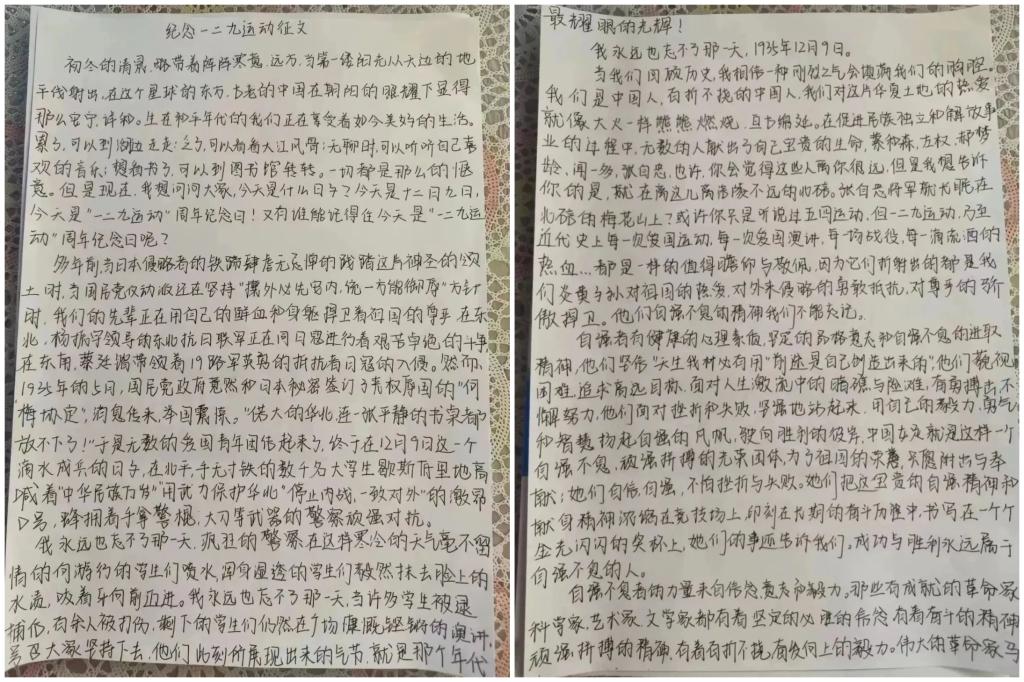 纪念一二九运动征文
初冬的清晨,略带着阵阵寒意,远方,当第一缕阳光从天边的地
平线射出,在这个星球的东方,古老的中国在朝阳的照耀下显得
那么安宁、详和。生在和平年代的我们正在享受着如今美好的生活。
累了,可以到湖边走走;乏了,可以看看大江风骨;无聊时,可以听听自己喜
欢的音乐;想看书了,可以到图书馆转转。一切都是那么的惬
意。但是现在,我想问问大家,今天是什么日子?今天是十二月九日,
今天是"一二九运动"周年纪念日!又有谁能记得住今天是"一二九运
动"周年纪念日呢?
多年前,当日本侵略者的铁蹄肆虐无忌惮的践踏这片神圣的领
土时,当国民党反动派还在坚持"攘外必先安内,统一方能御辱"方针
时,我们的先辈正在用自己的鲜血和身躯捍卫着祖国的尊严,在东
北,杨振宇领导的东北抗日联军正在同日寇进行着艰苦卓绝的斗争,
在东南,蔡廷锴带领着19路军英勇的抵抗着日寇的入侵。然而,
1935年的5月,国民党政府竟然和日本秘密签订了丧权辱国的"何
梅协定",消息传来,举国震惊。"偌大的华北,连一张平静的书桌都
放不下了!"于是无数的爱国青年团结起来了,终于在12月9日这一个
滴水成兵的日子,在北平,手无寸铁的数千名大学生歇斯底里地高
喊着"中华民族万岁""用武力保护华北""停止内战,一致对外"的激昂
口号,蜂拥着手拿警棍,大刀等武器的警察顽强对抗。
我永远也忘不了那一天,疯狂的警察在这样寒冷的天气毫不留
情的向游行的学生们喷水,浑身湿透的学生们毅然抹去脸上的
水流,咬着牙向前迈进。我永远也忘不了那一天,当许多学生被逮
捕后,百余人被打伤,剩下的学生们仍然在广场慷慨铿锵的演讲,
号召大家坚持下去,他们此刻所展现出来的气节,就是那个年代
最耀眼的光辉!
我永远也忘不了那一天,1935年12月9日。
当我们回放历史,我相信一种刚烈之气会填满我们的胸膛。
我们是中国人,百折不挠的中国人,我们对这片华夏土地的热爱
就像大火一样熊熊燃烧,亘古绵延。在促进民族独立和解放事
业的过程中,无数的人献出了自己宝贵的生命,蔡和森,左权,郝梦
龄,闻一多,张自忠,也许,你会觉得这些人离你很远,但是我想告诉
你的是,就在离这儿离涪陵不远的北碚。张自忠将军就长眠在
北碚的梅花山上?或许你只是听说过五四运动,但一二九运动,乃至
近代史上每一次爱国运动,每一次爱国演讲,每一场战役,每一滴流洒的
热血…都是一样的值得瞻仰与敬佩,因为它们折射出的都是我
们炎黄子孙对祖国的热爱,对外来侵略的勇敢抵抗,对尊严的骄
傲捍卫。他们自强不息的精神我们不能忘记。
自强者有健康的心理素质,坚定的品格意志和自强不息的进取
精神,他们坚信"天生我材必有用""命运是自己创造出来的",他们藐视
困难,追求高远目标,面对人生激流中的暗礁与险滩,有勇搏击,不
懈努力,他们面对挫折和失败,坚强地站起来,用自己的毅力,勇气
和智慧扬起自强的风帆,驶向胜利的彼岸,中国女足就是这样一个
自强不息,顽强拼搏的光荣团体,为了祖国的荣誉,只愿附出与奉
献;她们自信,自强,不怕挫折与失败。她们把这宝贵的自强精神和
献身精神浓缩在竞技场上,印刻在长期的奋斗历程中,书写在一个个
金光闪闪的奖杯上,她们的事迹告诉我们。成功与胜利永远属于
自强不息的人。
自强不息者的力量来自信念意志和毅力。那些有成就的革命家
科学家,艺术家,文学家都有着坚定的必胜的信念,有着奋斗的精神
顽强拼搏的精神,有着百折不挠,奋发向上的毅力。伟大的革命家马